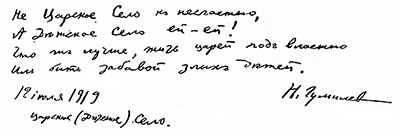 Не Царское Село къ несчастью,
А Дѣтское Село ей-ей!
Что жъ лучше, жить царей подъ властью
Иль быть забавой злыхъ дѣтей.
12 июля 1919
Н. Гумилев
Царское (Детское) Село.